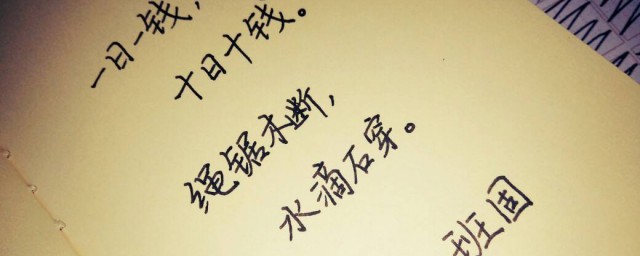 一日一钱，
十日十钱。
绳锯木断，
水滴石穿。
班固